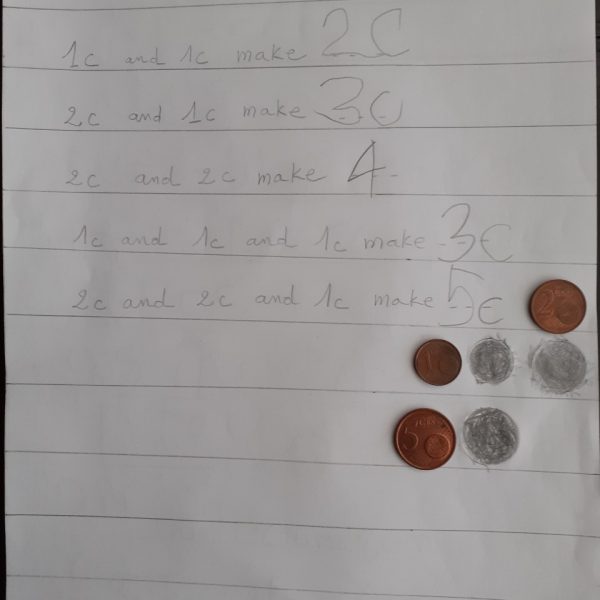 1c and 1c make 2C
2c and 1c make 3C
2c and 2c make 4
1c and 1c and 1c make 3€
2c and 2c and 1c make 5€
2
1
5